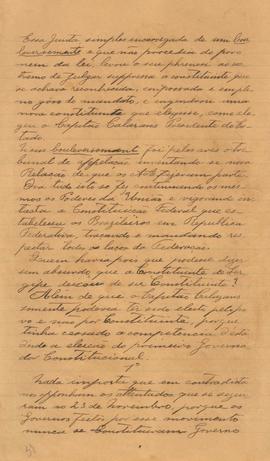 Essa Junta simples encarregada de um bou
leversement e que não procedia do povo
nem da lei, levou o seu phrenesi ao ex
tremo de julgar suppressa a constituinte que
se achava reconhecida, empossada e em ple-
no goso de mandato, e engendrou uma
nova constituinte que elegesse, como ele
geu o Capitão Calasans Presidente do Es
tado
Esse bouleversement foi pelos
bunal de appelação inventando se nova
Relação de que os faziam parte.
Ora tudo isto se fez continuando os mes
mos os Poderes da União e vigorando in-
tacta a Constituição Federal que es-
tabeleceu os Brazileiros em Republica
Federativa, tomando e mandando res-
peitar todos os laços da Federação.
Quem havia pois que podesse dizer
sem absurdo, que a Constituinte de Ser
gipe deixou de ser Constituinte?
Alem de que o Capitão Calasans
somente poderia ter sido eleito pelo po
vo e não por Constituinte, porque
tinha cessado a competencia desta
na eleição do primeiro Governa
dor Constitucional.
Nada importa que em contradicta
se opponham os attentados que se segui
ram ao 23 de Novembro, porque os
Governos feitos por esse movimento
nunca se Constituiram Governo